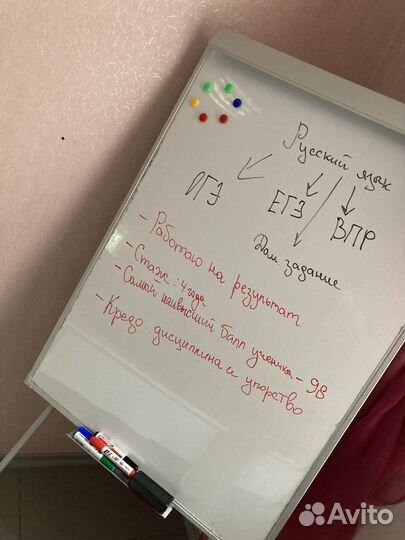 Русский язык
ОГЭ
ЕГЭ
ВПР
Дом задание
- Работаю на результат
- Стаж: 4 года
- Самый наивысший балл ученика - 98
- Кредо: дисциплина и упорство
Avito